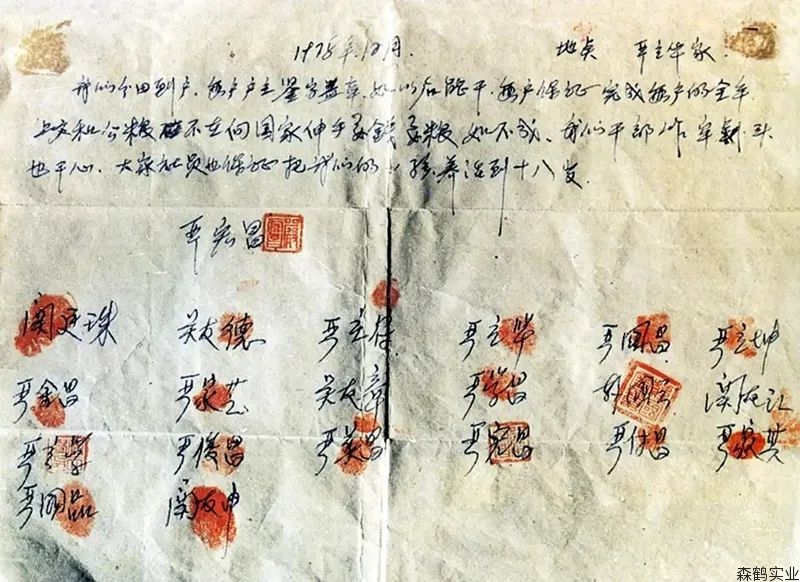 1978年12月. 地点 严立华家
我们分田到户,每户户主签字盖章,如以后能干,每户保证完成每户的全年
上交和公粮 不在向国家伸手要钱要粮 如不成,我们干部作牢剎头
也干心,大家社员也保证把我们的小孩养活到十八岁.
严宏昌
关廷珠 关友德 严立符 严立华 严国昌 严立坤
严金昌 严家芝 关友章 严学昌 韩国云 关友江
严立学 严俊昌 严美昌 严宏昌 严付昌 严家其
严国品 关友申
森鹤实业